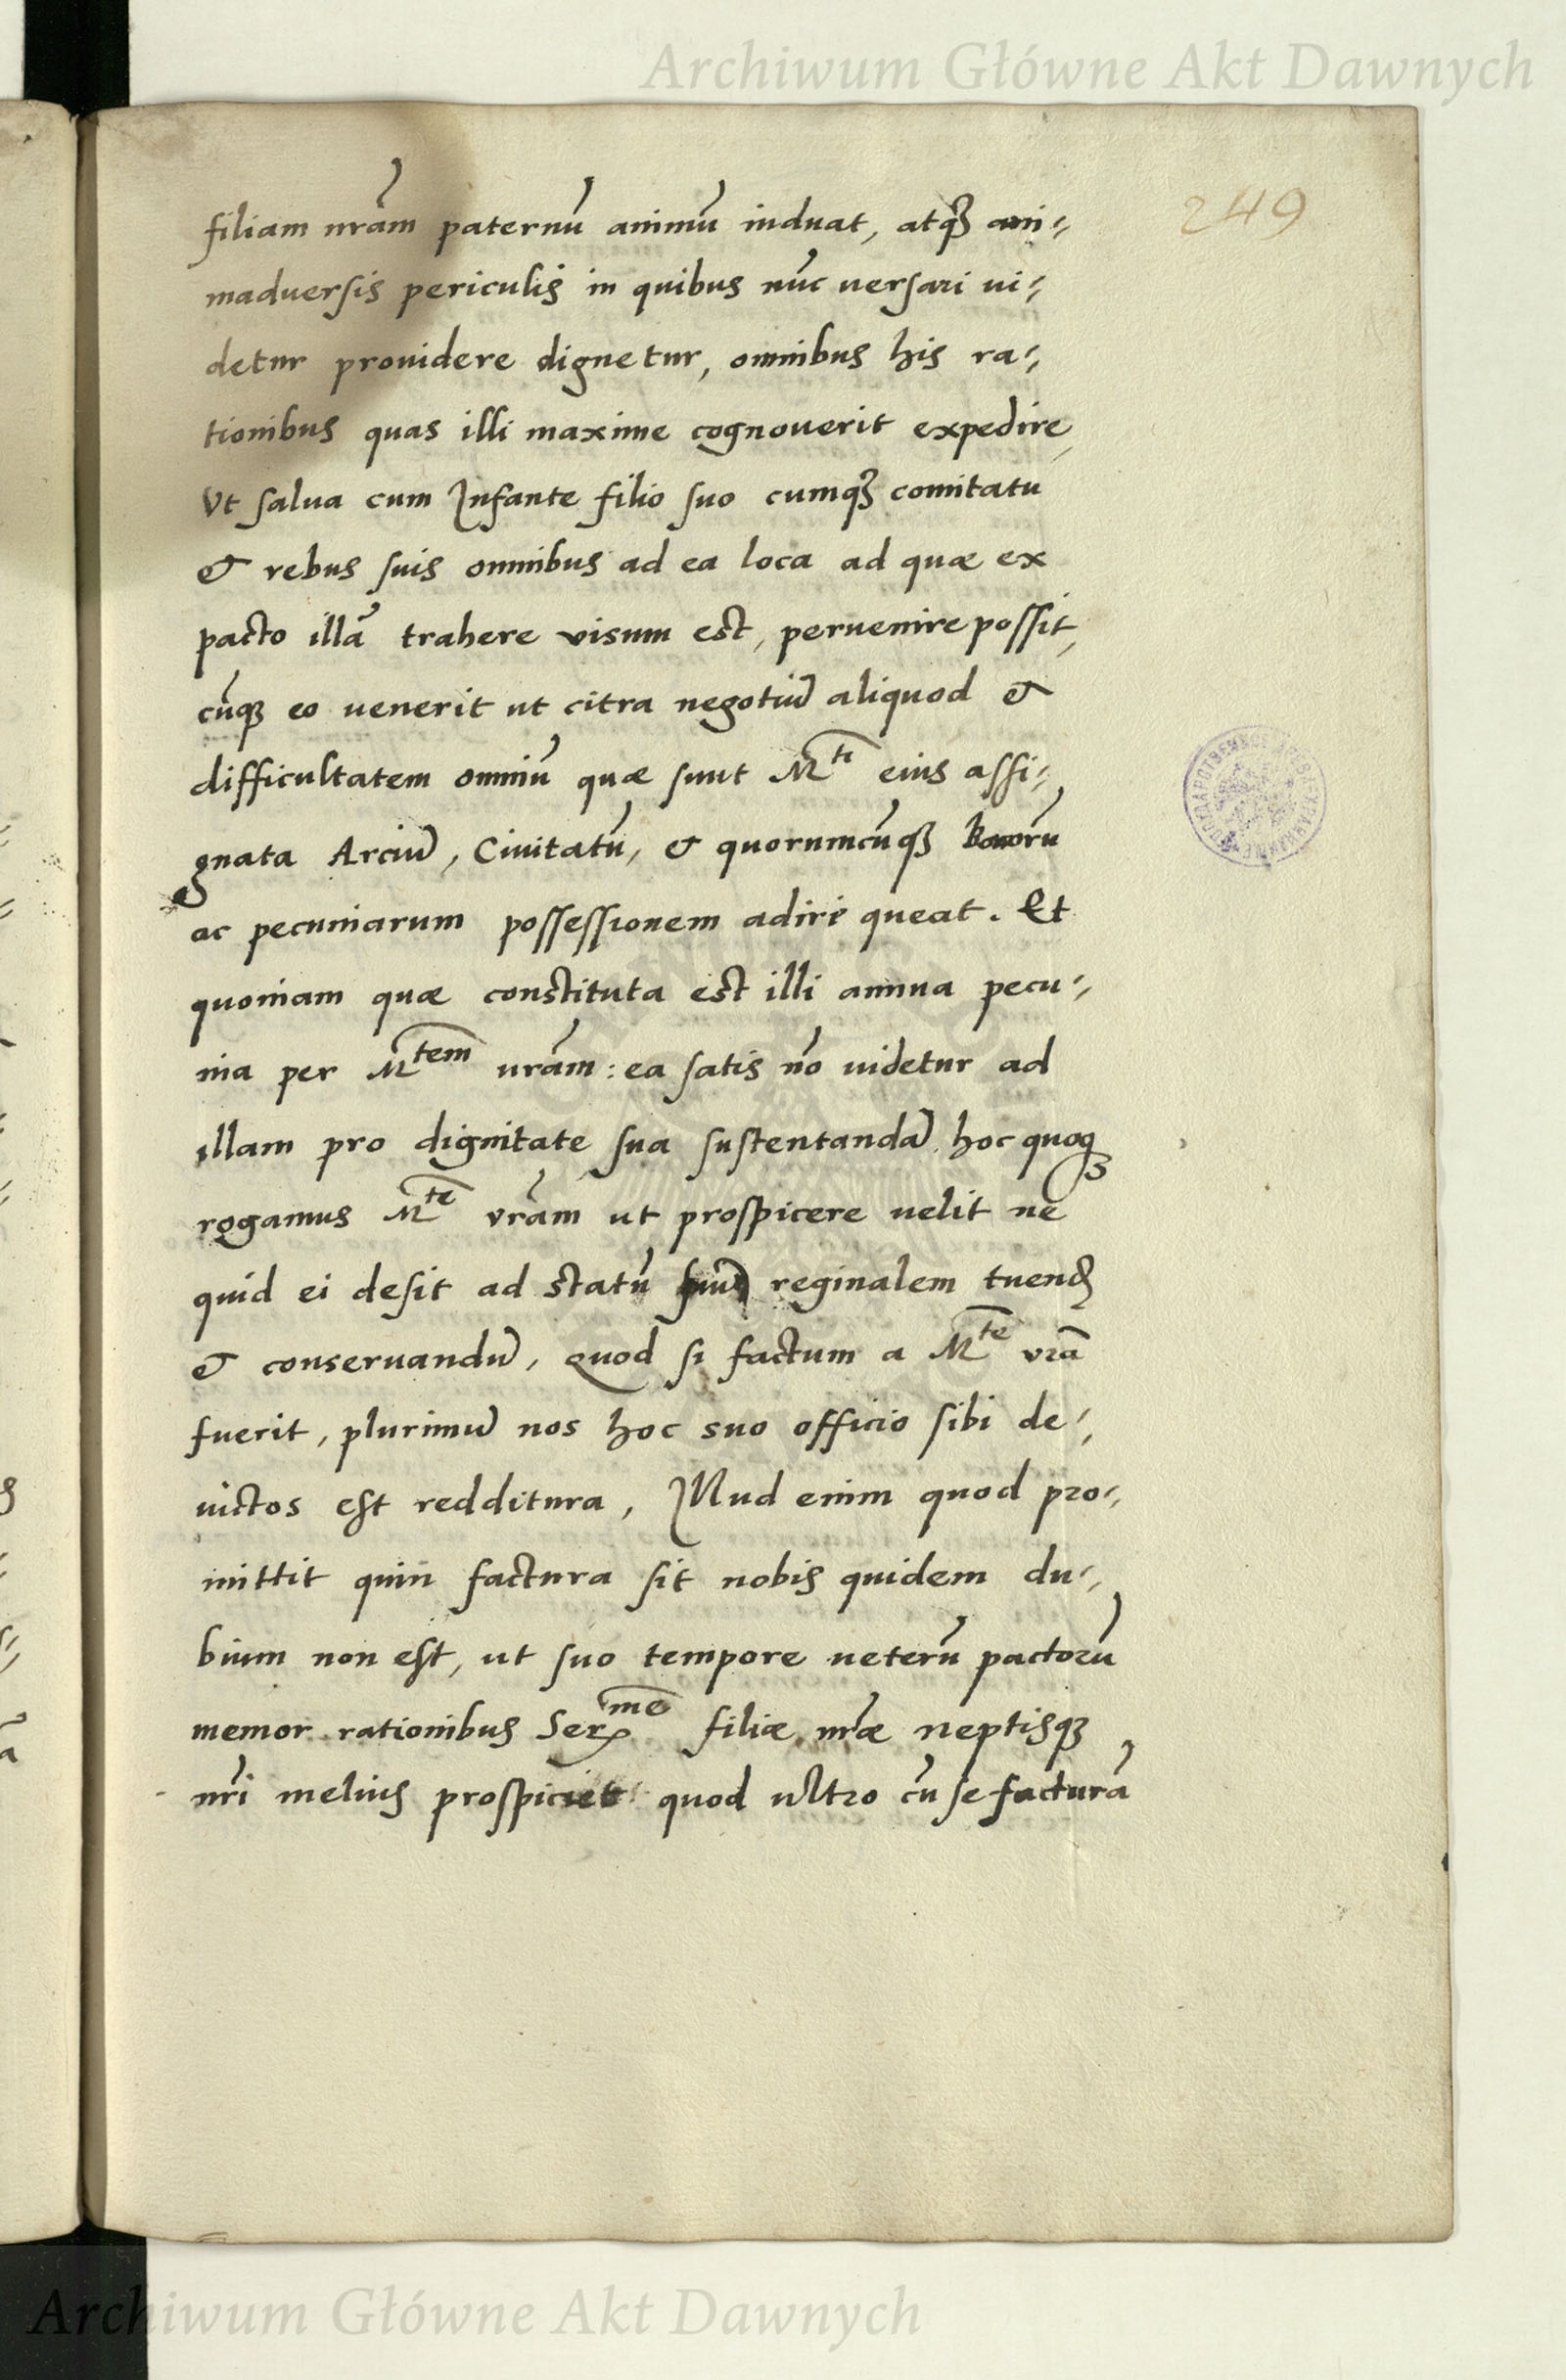 Archiwum Główne Akt Dawnych
249
filiam nrām paternū animū induat, atqꝫ ani-
maduersis periculis in quibus nūc uersari ui-
detur prouidere dignetur, omnibus his ra-
tionibus quas illi maxime cognouerit expedire,
Vt salua cum Infante filio suo cumqꝫ comitatu
& rebus suis omnibus ad ea loca ad quæ ex
pacto illā trahere visum est, peruenire possit,
cūqꝫ eo uenerit ut citra negotiū aliquod &
difficultatem omniū quæ sunt M^ti eius assi-
gnata Arciū, Ciuitatū, & quorumcūqꝫ bonorū
ac pecuniarum possessionem adire queat. Et
quoniam quæ constituta est illi annua pecu-
nia per M^tem vrām: ea satis nō uidetur ad
illam pro dignitate sua sustentandā, hoc quoqꝫ
rogamus M^te vrām ut prospicere uelit ne
quid ei desit ad statū suū reginalem tuend
& conseruandū, Quod si factum a M^te vrā
fuerit, plurimū nos hoc suo officio sibi de-
uictos est redditura, Illud enim quod pro-
mittit quin factura sit nobis quidem du-
bium non est, ut suo tempore ueterū pactorū
memor rationibus Ser^me filiæ nræ neptisqꝫ
nri melius prospiciet quod ultro cū se facturā
Archiwum Główne Akt Dawnych